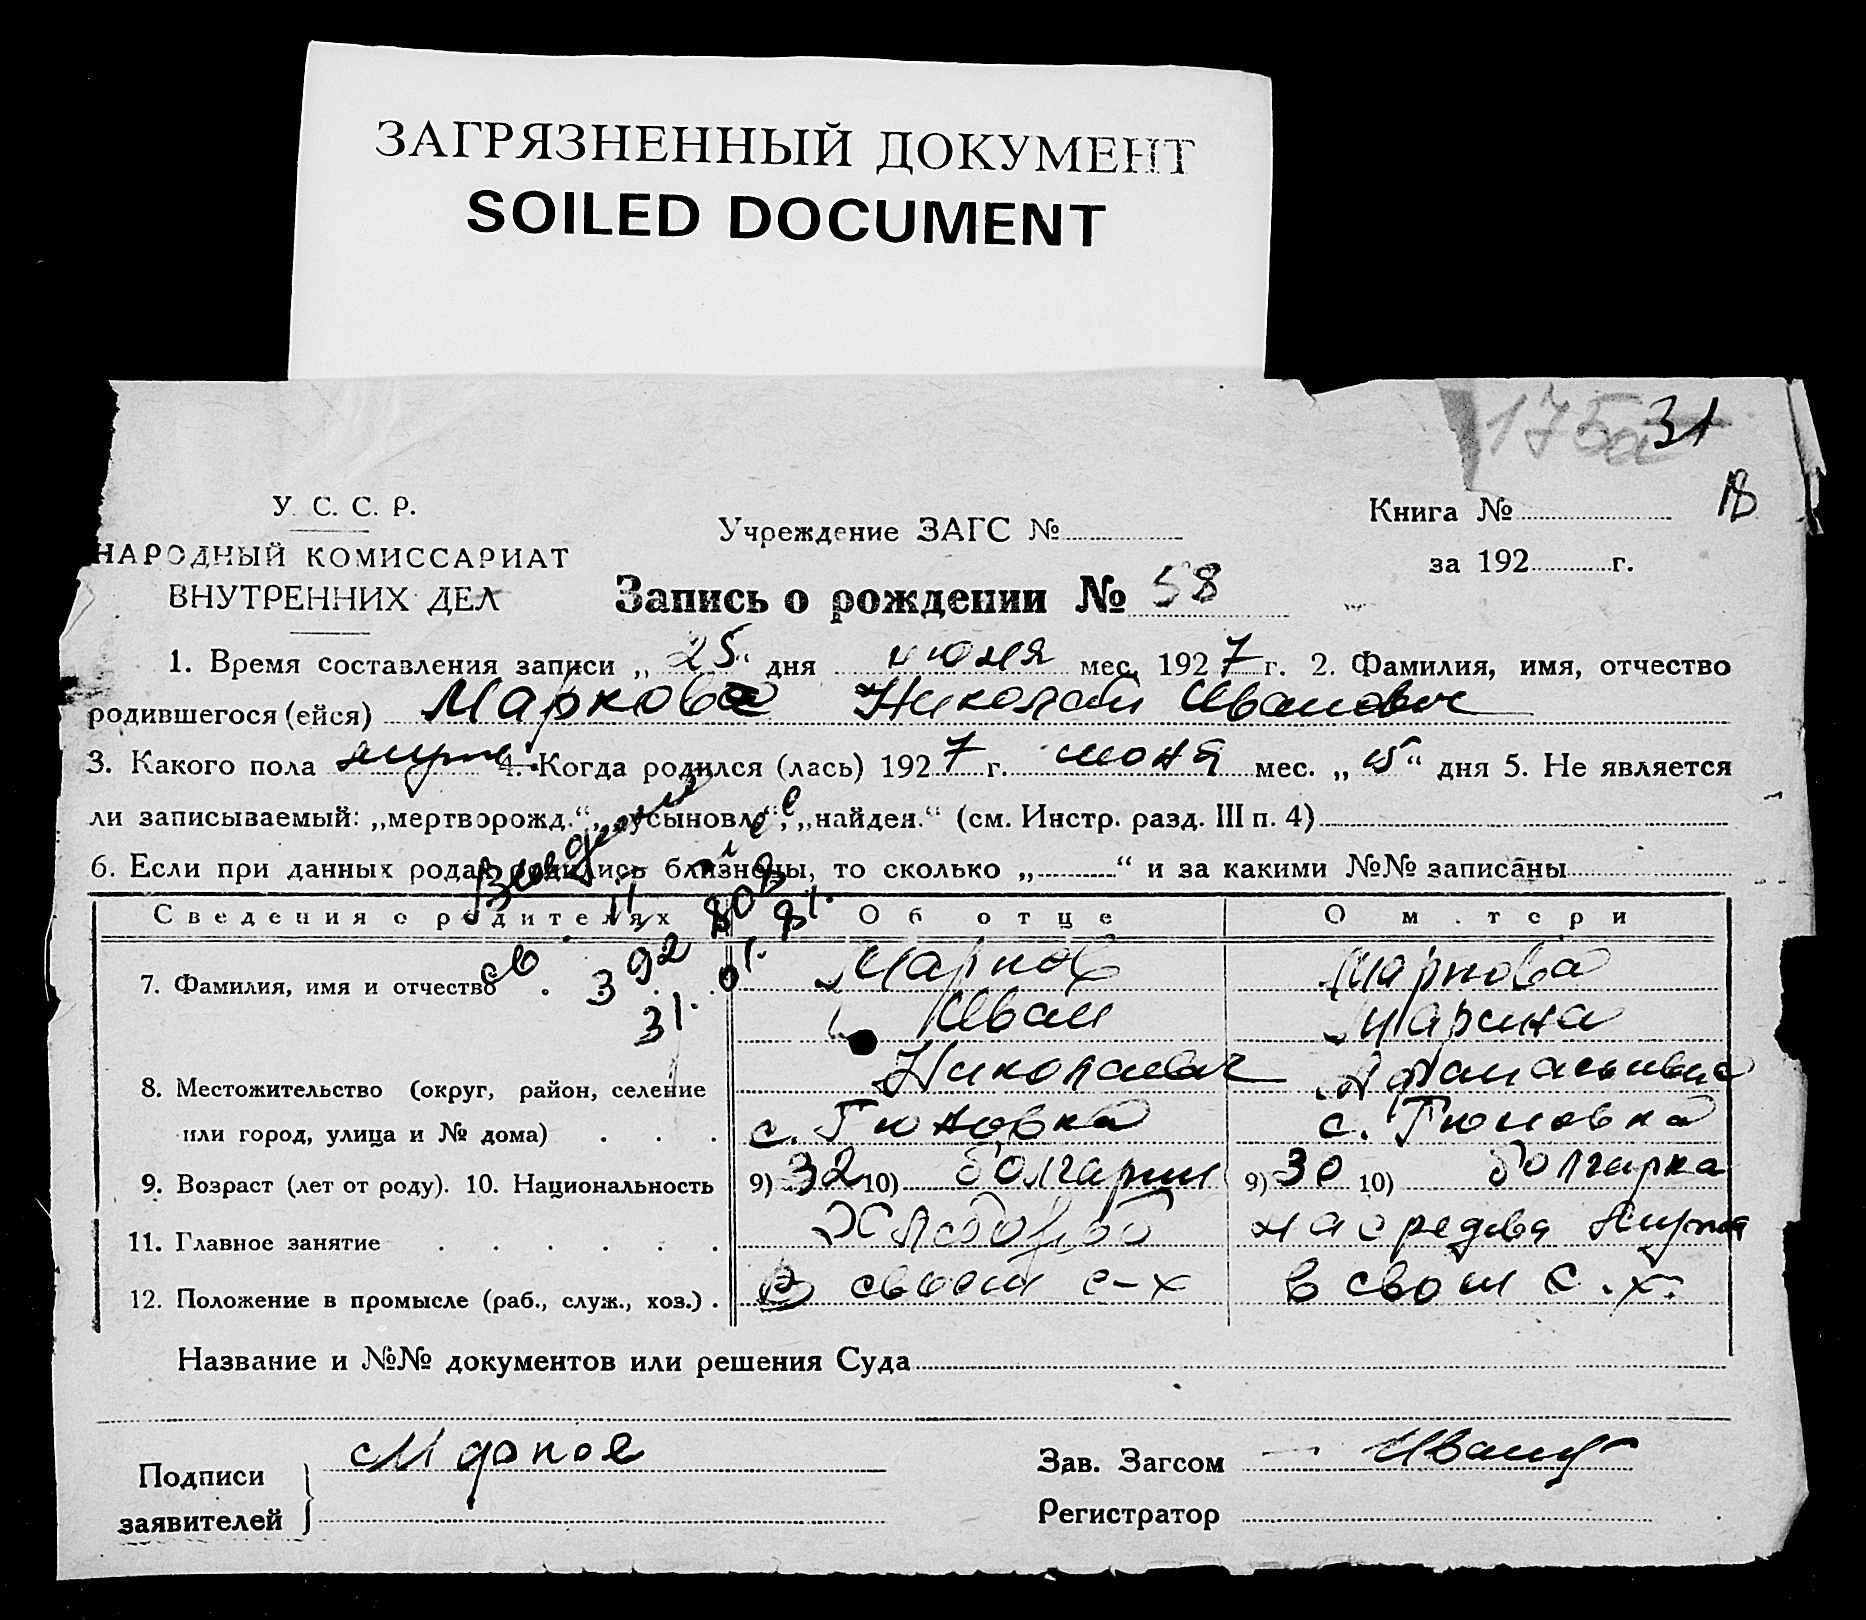 ЗАГРЯЗНЕННЫЙ ДОКУМЕНТ
SOILED DOCUMENT
175а 31
18
У. С. С. Р.
НАРОДНЫЙ КОМИССАРИАТ
ВНУТРЕННИХ ДЕЛ
Учреждение ЗАГС №
Книга №
за 192 г.
Запись о рождении № 58
1. Время составления записи „25“ дня июня мес. 1927 г. 2. Фамилия, имя, отчество
родившегося (ейся) Маркова Николай Иванович
3. Какого пола муж. 4. Когда родился (лась) 1927 г. июня мес. „15“ дня 5. Не является
ли записываемый: „мертворожд.“, „усыновл.“, „найден.“ (см. Инстр. разд. III п. 4)
6. Если при данных родах родились близнецы, то сколько „ “ и за какими №№ записаны
Сведения о родителях Об отце О м.тери
7. Фамилия, имя и отчество Марков Маркова
Иван Марина
Николаевич
8. Местожительство (округ, район, селение
или город, улица и № дома) с. Гюновка с. Гюновка
9. Возраст (лет от роду). 10. Национальность 9) 32 10) болгарин 9) 30 10) болгарка
11. Главное занятие Хлебороб на средствя мужа
12. Положение в промысле (раб., служ., хоз.) В своем с-х в свом с.х.
Название и №№ документов или решения Суда
Подписи
заявителей
Зав. Загсом
Регистратор